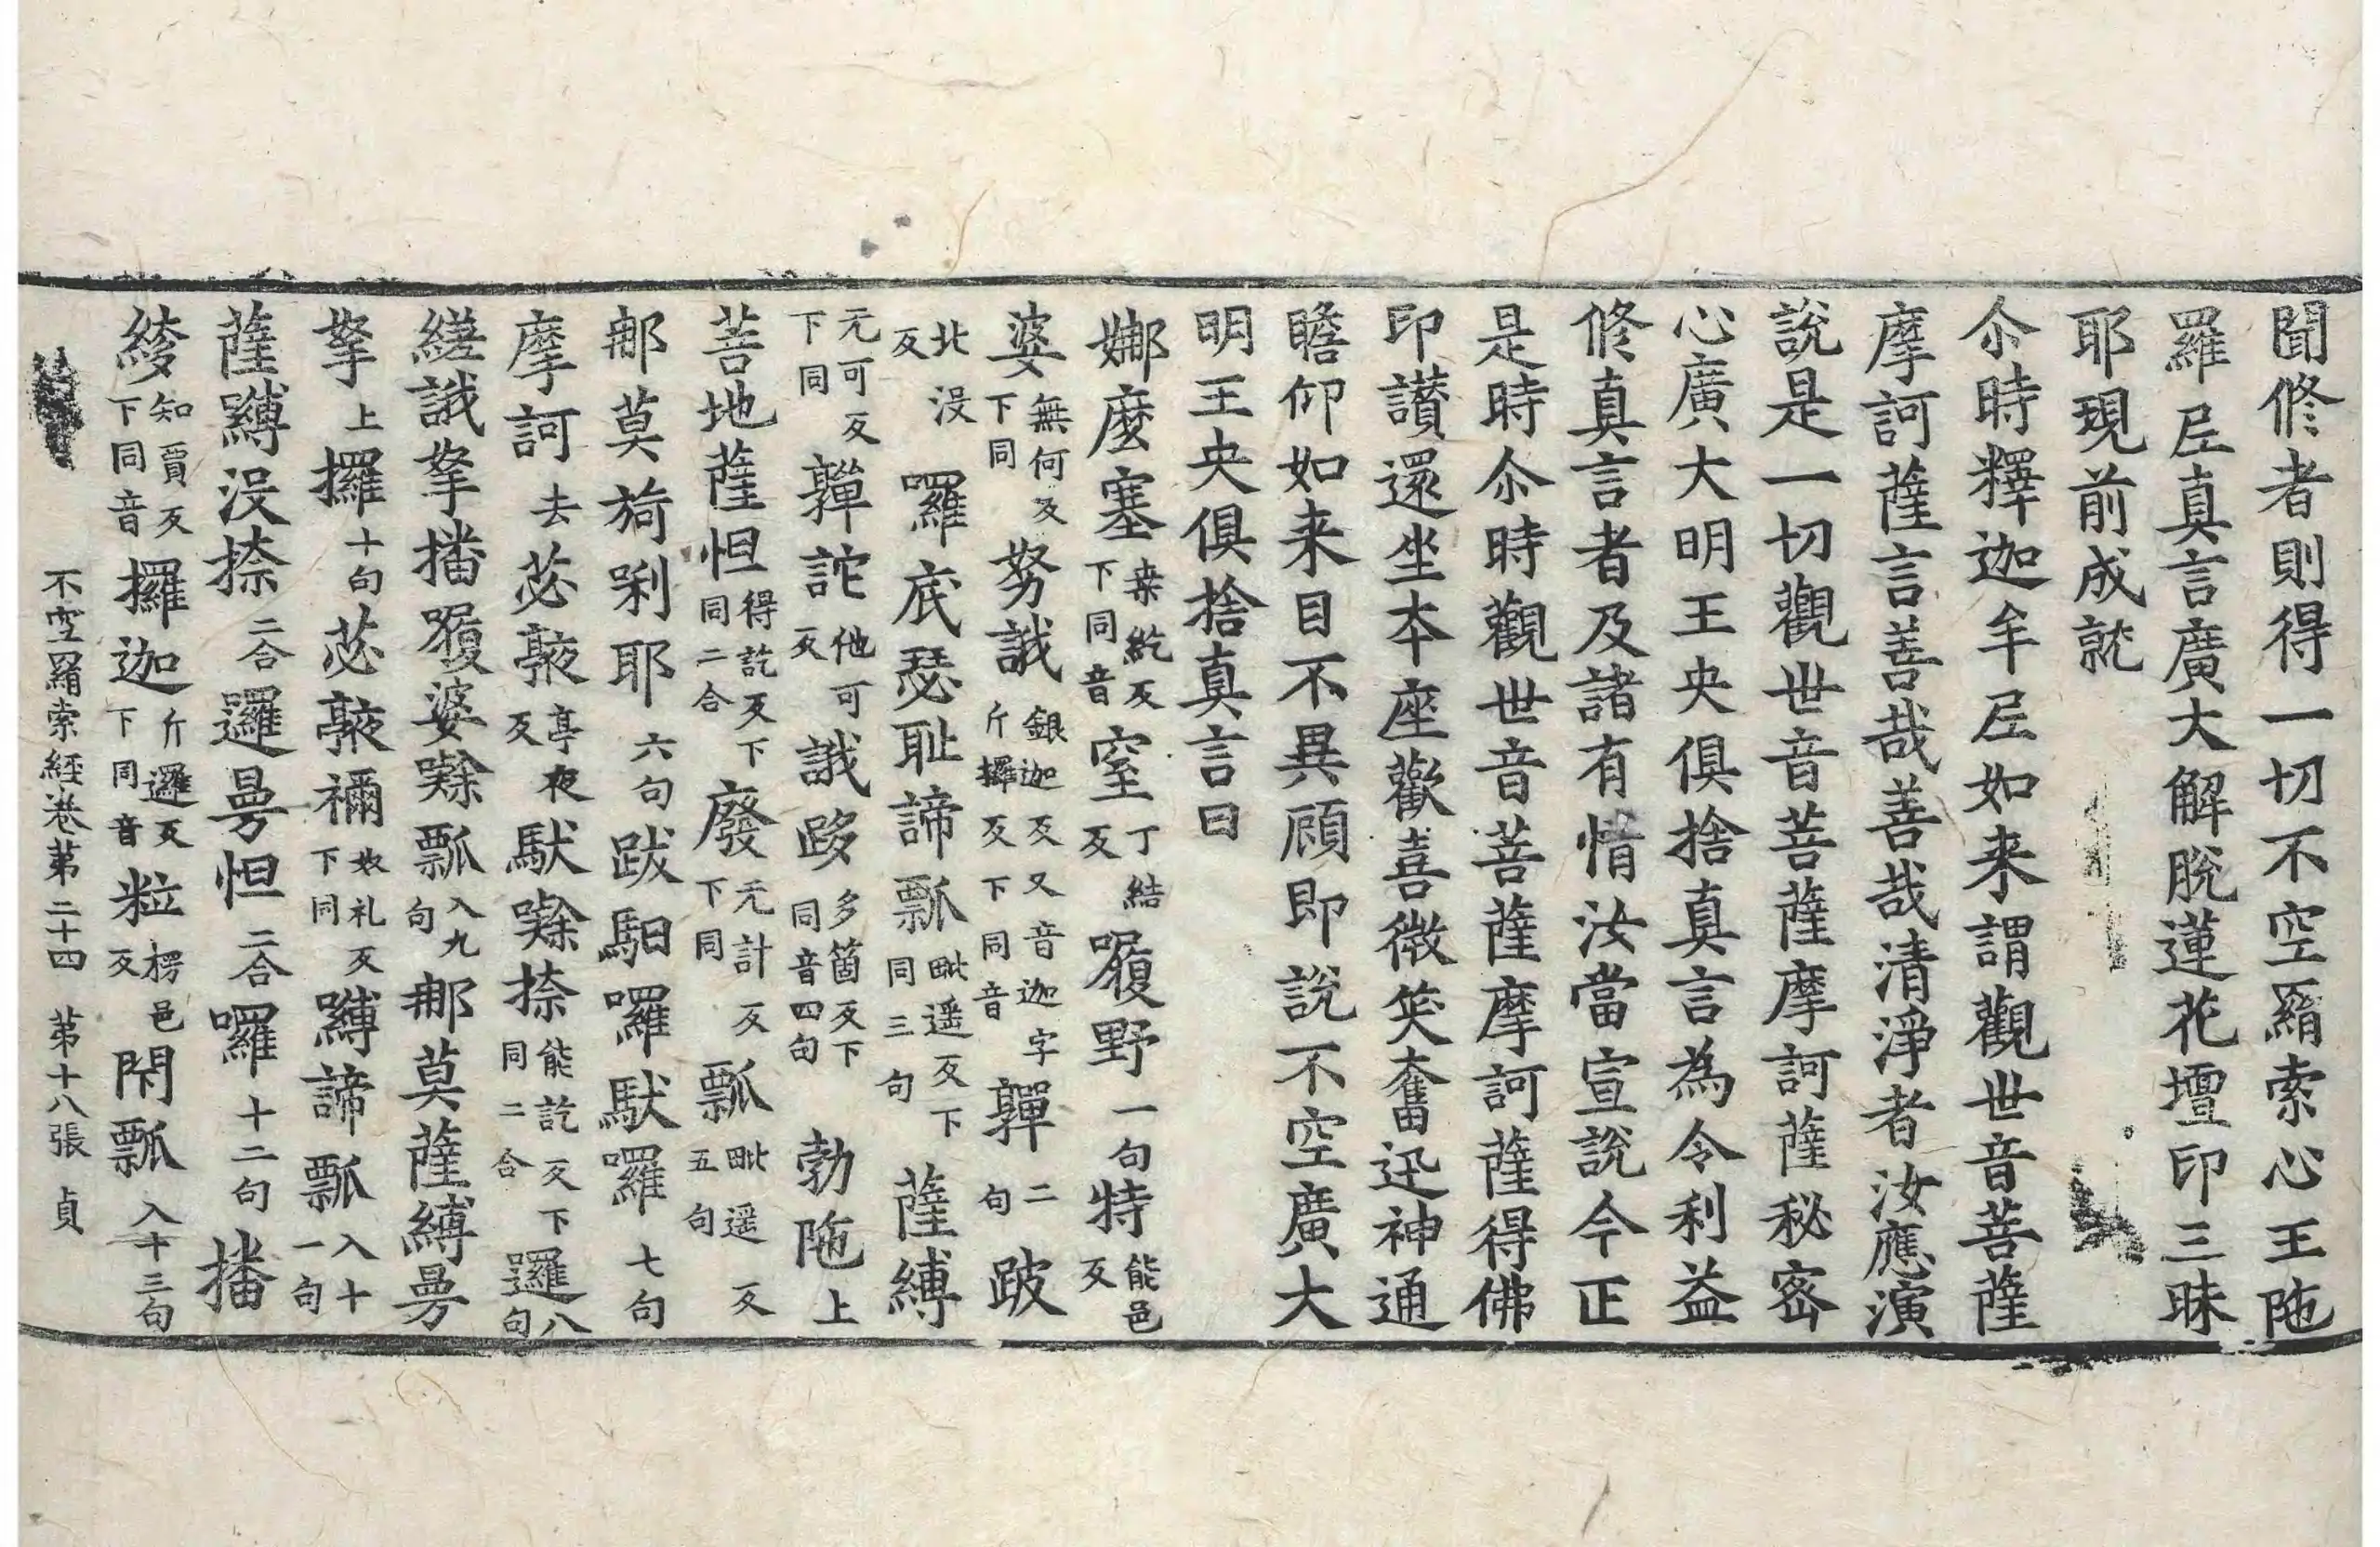 聞修者則得一切不空羂索心王陁
羅尼真言廣大解脫蓮花壇印三昧
耶現前成就
尒時釋迦牟尼如来謂觀世音菩薩
摩訶薩言善哉善哉清淨者汝應演
說是一切觀世音菩薩摩訶薩秘密
心廣大明王央俱捨真言為令利益
修真言者及諸有情汝當宣說今正
是時尒時觀世音菩薩摩訶薩得佛
印讃還坐本座歡喜微笑奮迅神通
瞻仰如来目不異顧即說不空廣大
明王央俱捨真言曰
娜麼塞桒紇反下同音窒丁結反囉野一句特能邑反
婆無何反下同努誐銀迦反又音迦字斤攞反下同音亸二句跛
北沒反囉底瑟耻諦瓢毗遥反下同三句薩縛
无可反下同亸詑他可反誐跢多箇反下同音四句勃陁上
菩地薩怛得訖反下同二合廢无計反下同瓢毗遥反五句
那莫旖唎耶六句跋馹囉馱囉七句
摩訶去苾䕪亭夜反馱㗚捺能訖反下同二合邏八句
縒誐拏播履婆㗚瓢入九句那莫薩縛曼
拏上攞十句苾䕪禰奴礼反下同縛諦瓢入十一句
薩縛沒捺二合邏曼怛二合囉十二句播
綾知賈反下同音攞迦斤邏反下同音粒楞邑反閇瓢入十三句
不空羂索經卷苐二十四　苐十八張　貞